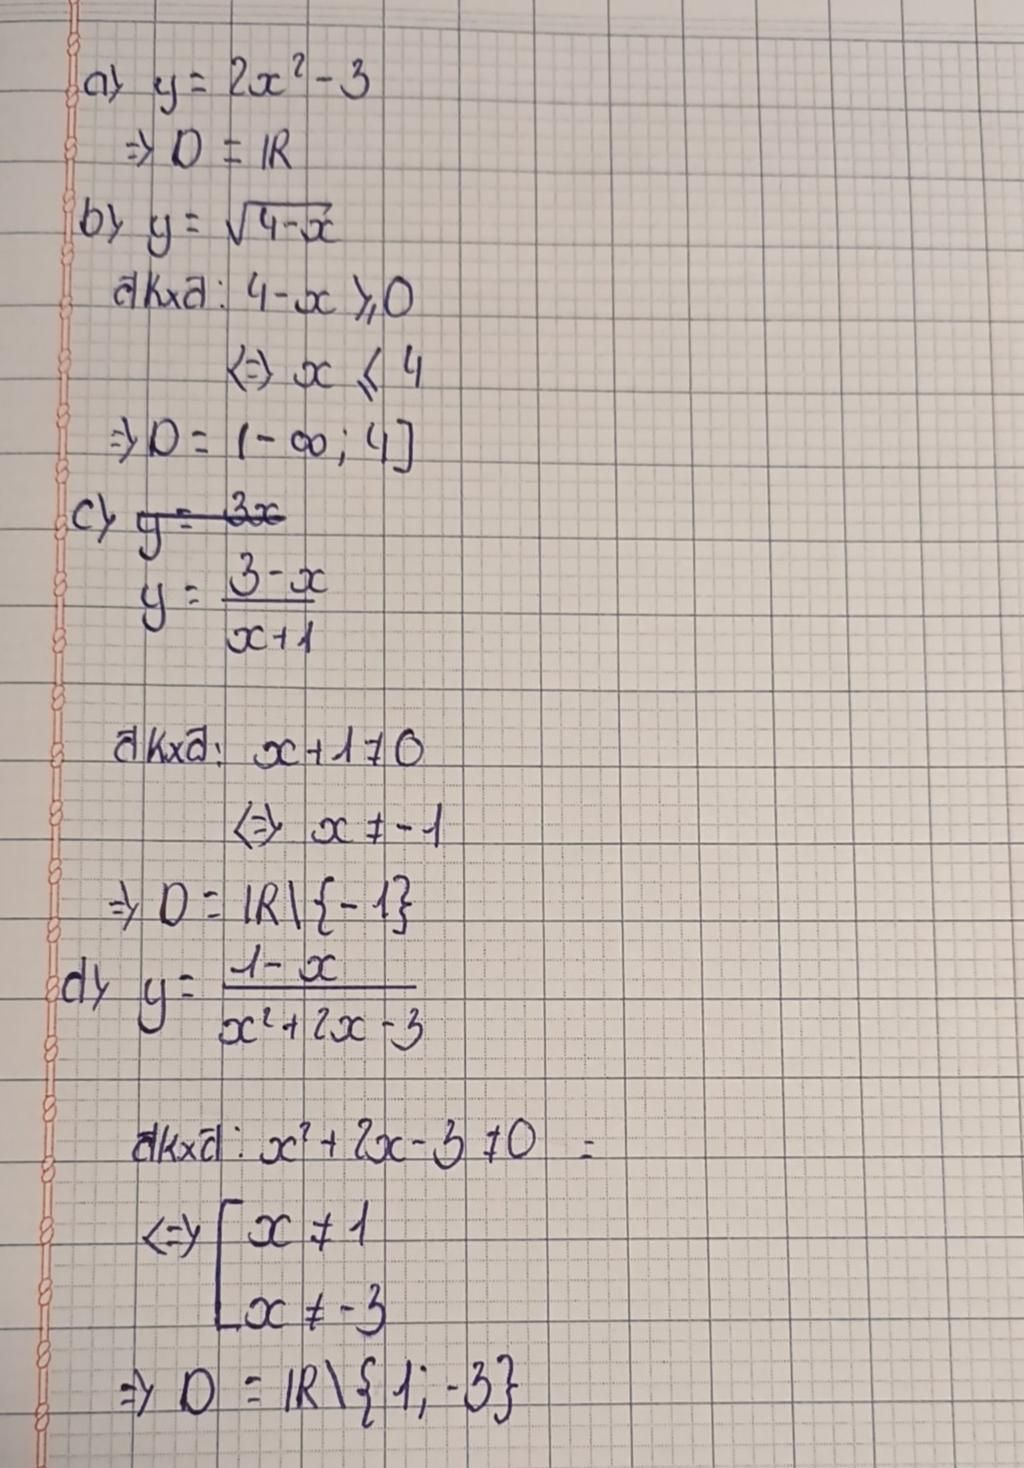 a) y = 2x² - 3
=> D = ℝ
b) y = √(4-x)
đkxđ: 4-x ⩾ 0
<=> x ⩽ 4
=> D = (-∞; 4]
c) ~~y = 3x~~
y = (3-x)/(x+1)
đkxđ: x+1 ≠ 0
<=> x ≠ -1
=> D = ℝ\{-1}
d) y = (1-x)/(x²+2x-3)
đkxđ: x²+2x-3 ≠ 0 =
<=> [ x ≠ 1
x ≠ -3
=> D = ℝ\{1; -3}